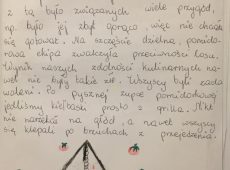 z tą było związanych wiele przygód,
np. było jej zbyt gorąco, więc nie chciała
się gotować. Na szczęście dzielna, pomido-
rowa ekipa zwalczyła przeciwności losu.
Wynik naszych zdolności kulinarnych na-
wet nie były takie złe. Wszyscy byli zado
woleni. Po pysznej zupie pomidorowej
jedliśmy kiełbasę prosto z grilla. Nikt
nie narzekał na głód, a nawet wszyscy
się klepali po brzuchach z przejedzenia.